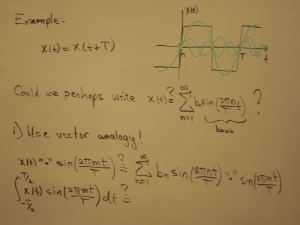 Example:
x(t)
x(t) = x(t+T)
T
t
Could we perhaps write x(t) ?= ∞ Σ n=1 bn sin(2πnt/T) ?
basis
1) Use vector analogy!
x(t) "·" sin(2πmt/T) ?= ∞ Σ n=1 bn sin(2πnt/T) "·" sin(2πmt/T)
∫ T/2 -T/2 x(t) sin(2πmt/T) dt ?=